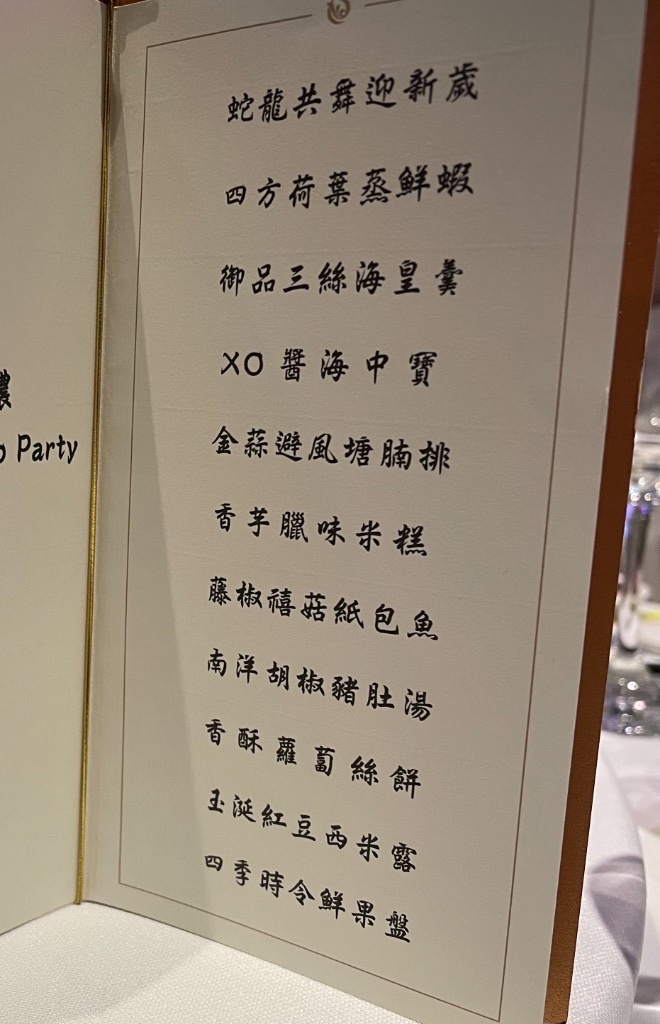 濃
o Party
蛇龍共舞迎新歲
四方荷葉蒸鮮蝦
御品三絲海皇羹
XO醬海中寶
金蒜避風塘腩排
香芋臘味米糕
藤椒禧菇紙包魚
南洋胡椒豬肚湯
香酥蘿蔔絲餅
玉涎紅豆西米露
四季時令鮮果盤